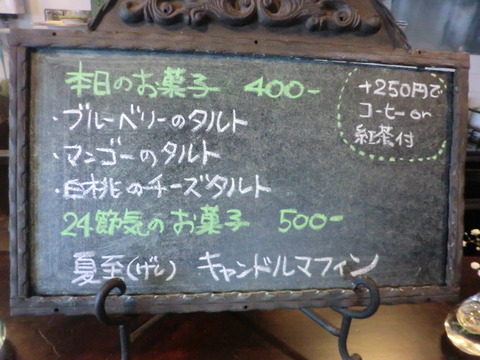 本日のお菓子 400-
・ブルーベリーのタルト
・マンゴーのタルト
・白桃のチーズタルト
24節気のお菓子 500-
夏至(げし) キャンドルマフィン
+250円で
コーヒー or
紅茶付